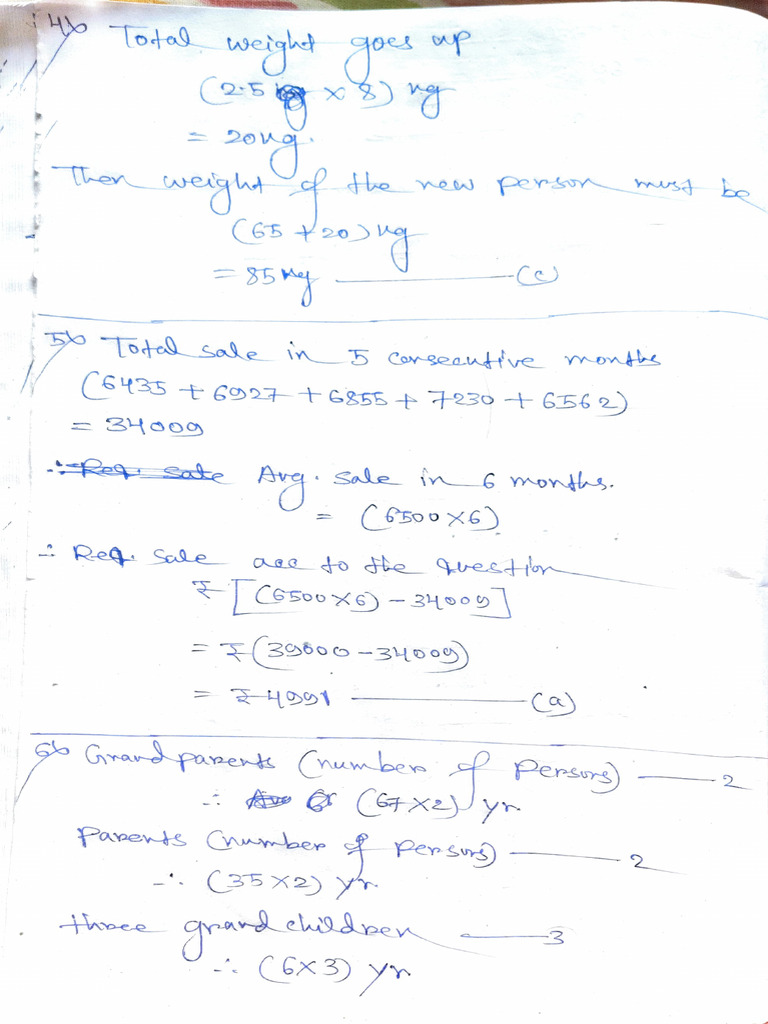 4) Total weight goes up
(2.5 × 8) kg
= 20kg.
Then weight of the new person must be
(65 + 20) kg
= 85 kg ——— (c)
5) Total sale in 5 consecutive months
(6435 + 6927 + 6855 + 7230 + 6562)
= 34009
∴ Req. sale Avg. sale in 6 months.
= (6500 × 6)
∴ Req. sale acc to the question
₹ [(6500 × 6) – 34009]
= ₹ (39000 – 34009)
= ₹ 4991 ——— (a)
6) Grandparents (number of persons) ——— 2
∴ (67 × 2) yr
Parents (number of persons) ——— 2
∴ (35 × 2) yr.
three grandchildren ——— 3
∴ (6 × 3) yr